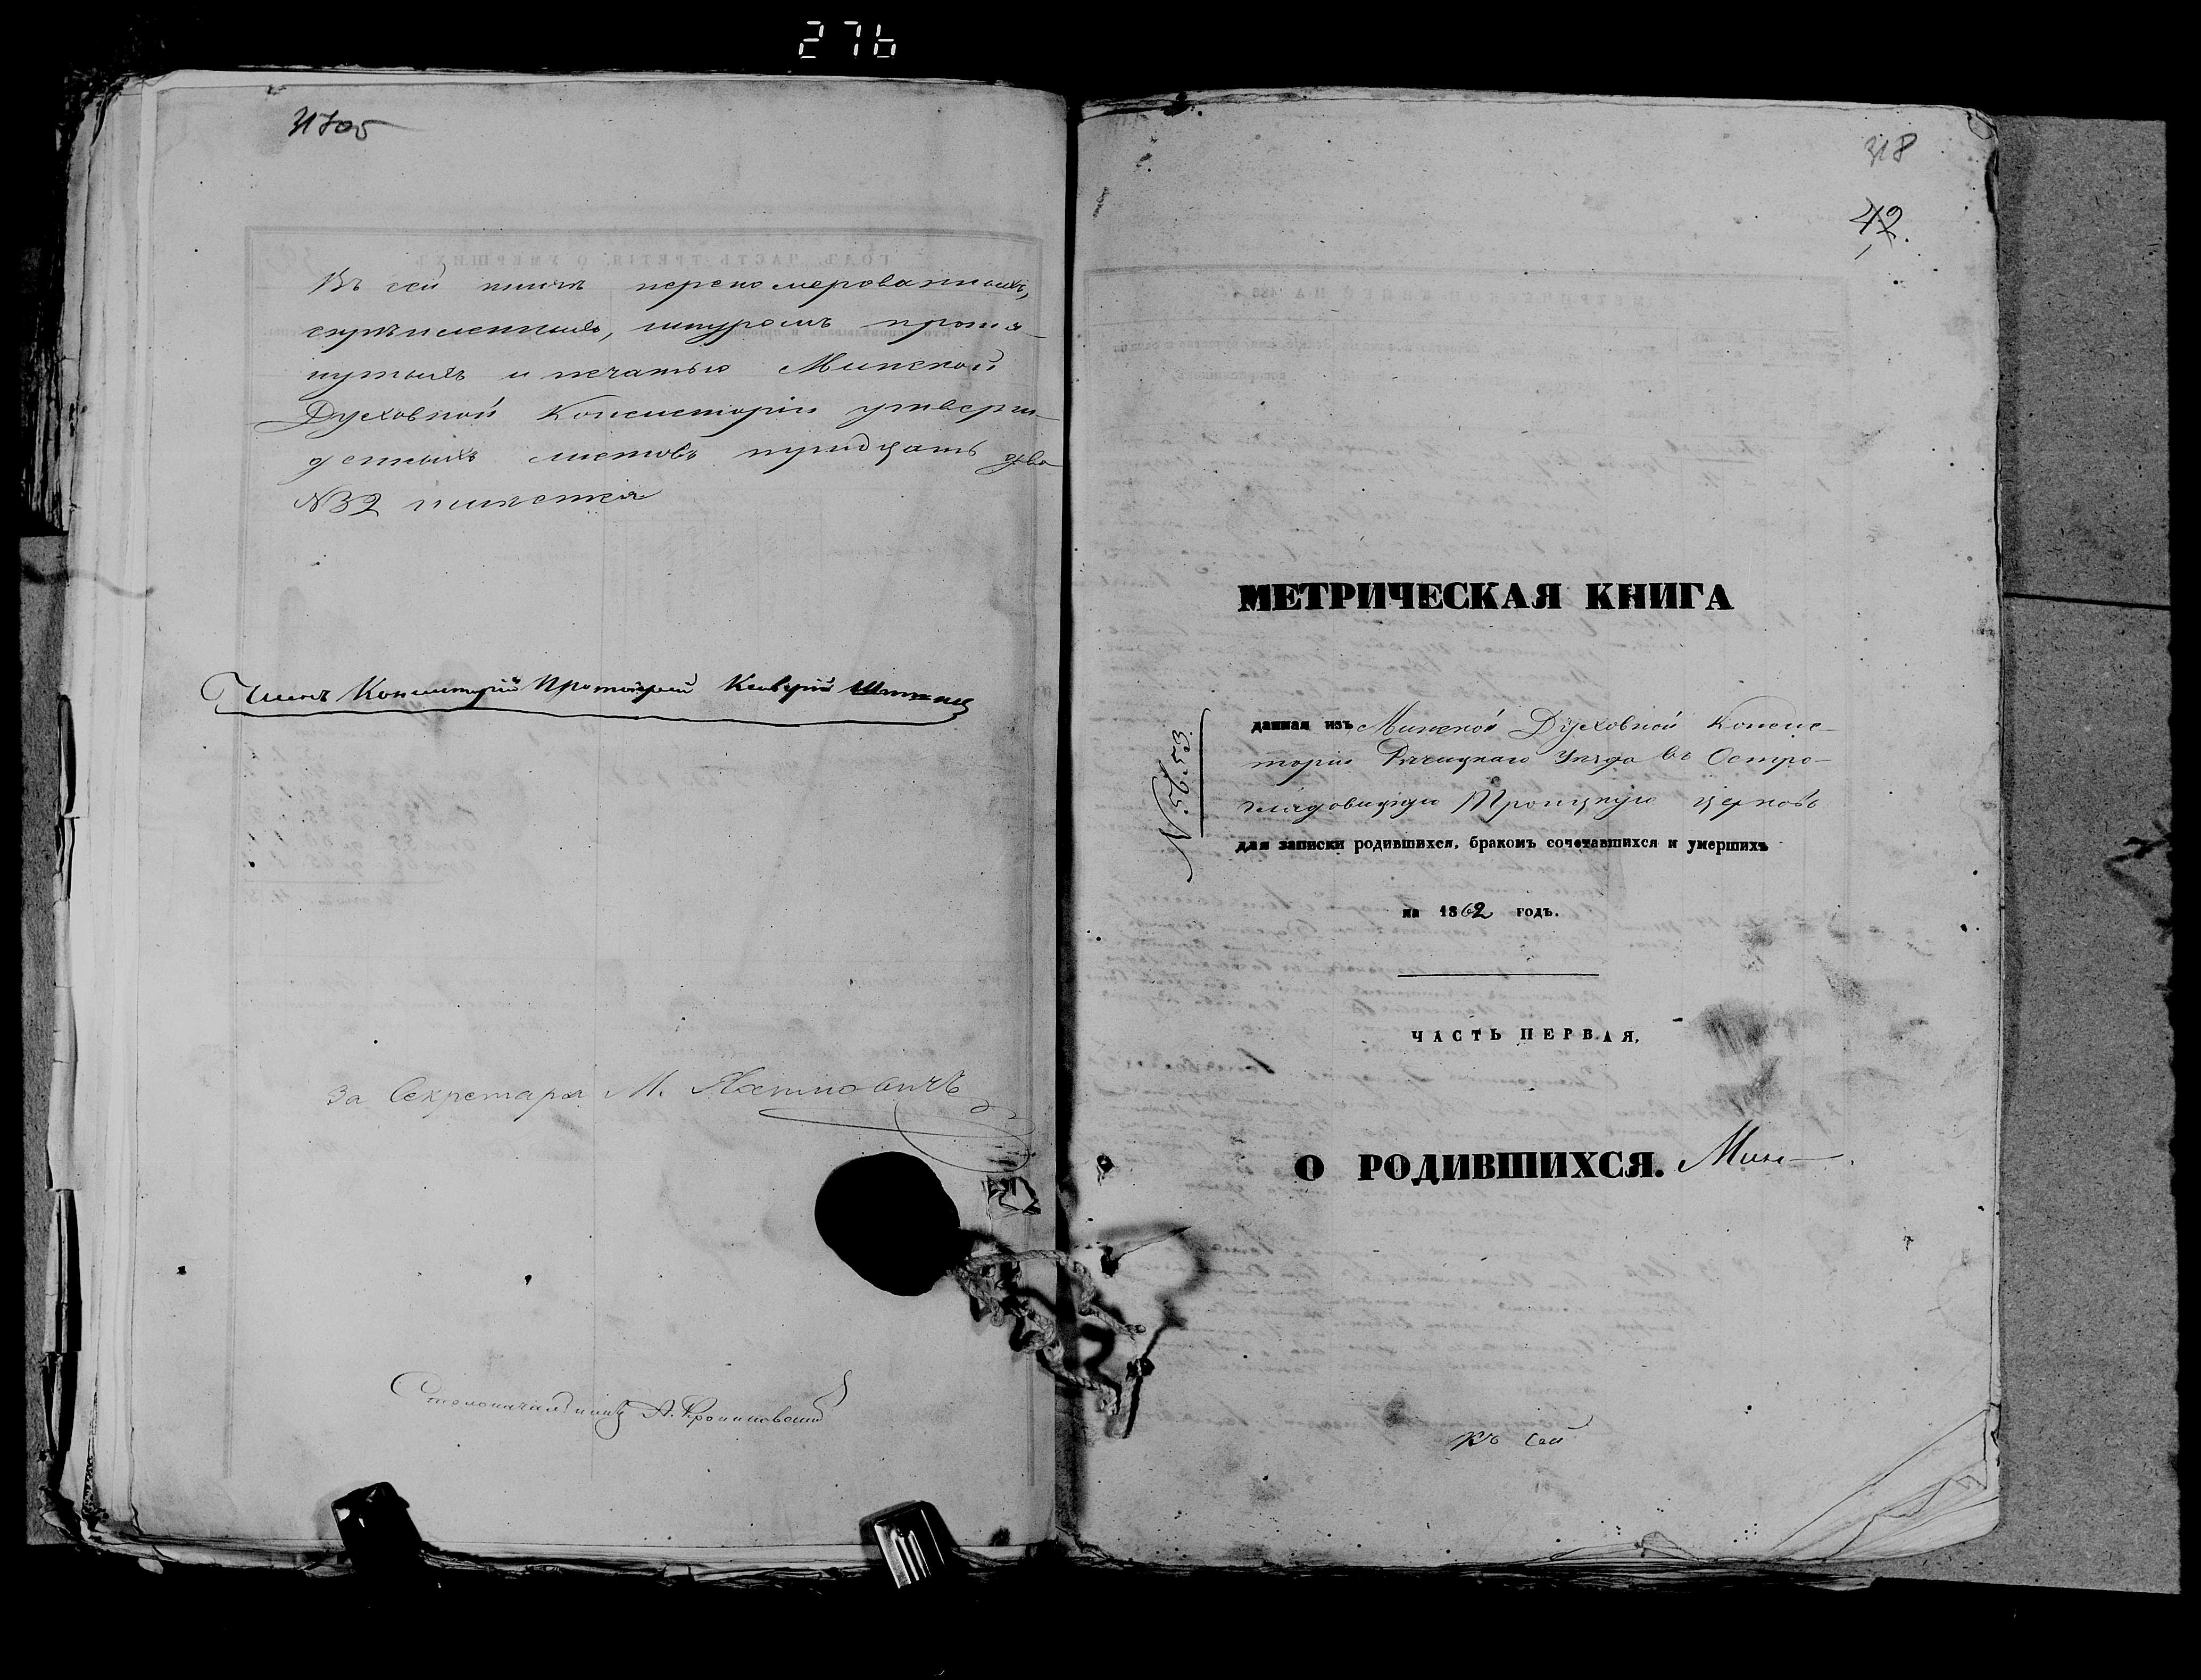 276
317об
Въ сей книгѣ перенумерованныхъ,
скрѣпленныхъ, шнуромъ протя-
нутыхъ и печатью Минской
Духовной Консисторіи утверж-
денныхъ листовъ тридцать два
№32 имѣется
Членъ Консисторіи Протоіерей
За Секретаря М.
Столоначальникъ А.
318
42.
МЕТРИЧЕСКАЯ КНИГА
№ 5653
данная изъ Минской Духовной Консис-
торіи Рѣчицкаго Уѣзда въ Остро-
глядовицкую Троицкую церковь
для записки родившихся, бракомъ сочетавшихся и умершихъ
на 1862 годъ.
ЧАСТЬ ПЕРВАЯ,
О РОДИВШИХСЯ. Мин-
Къ сей